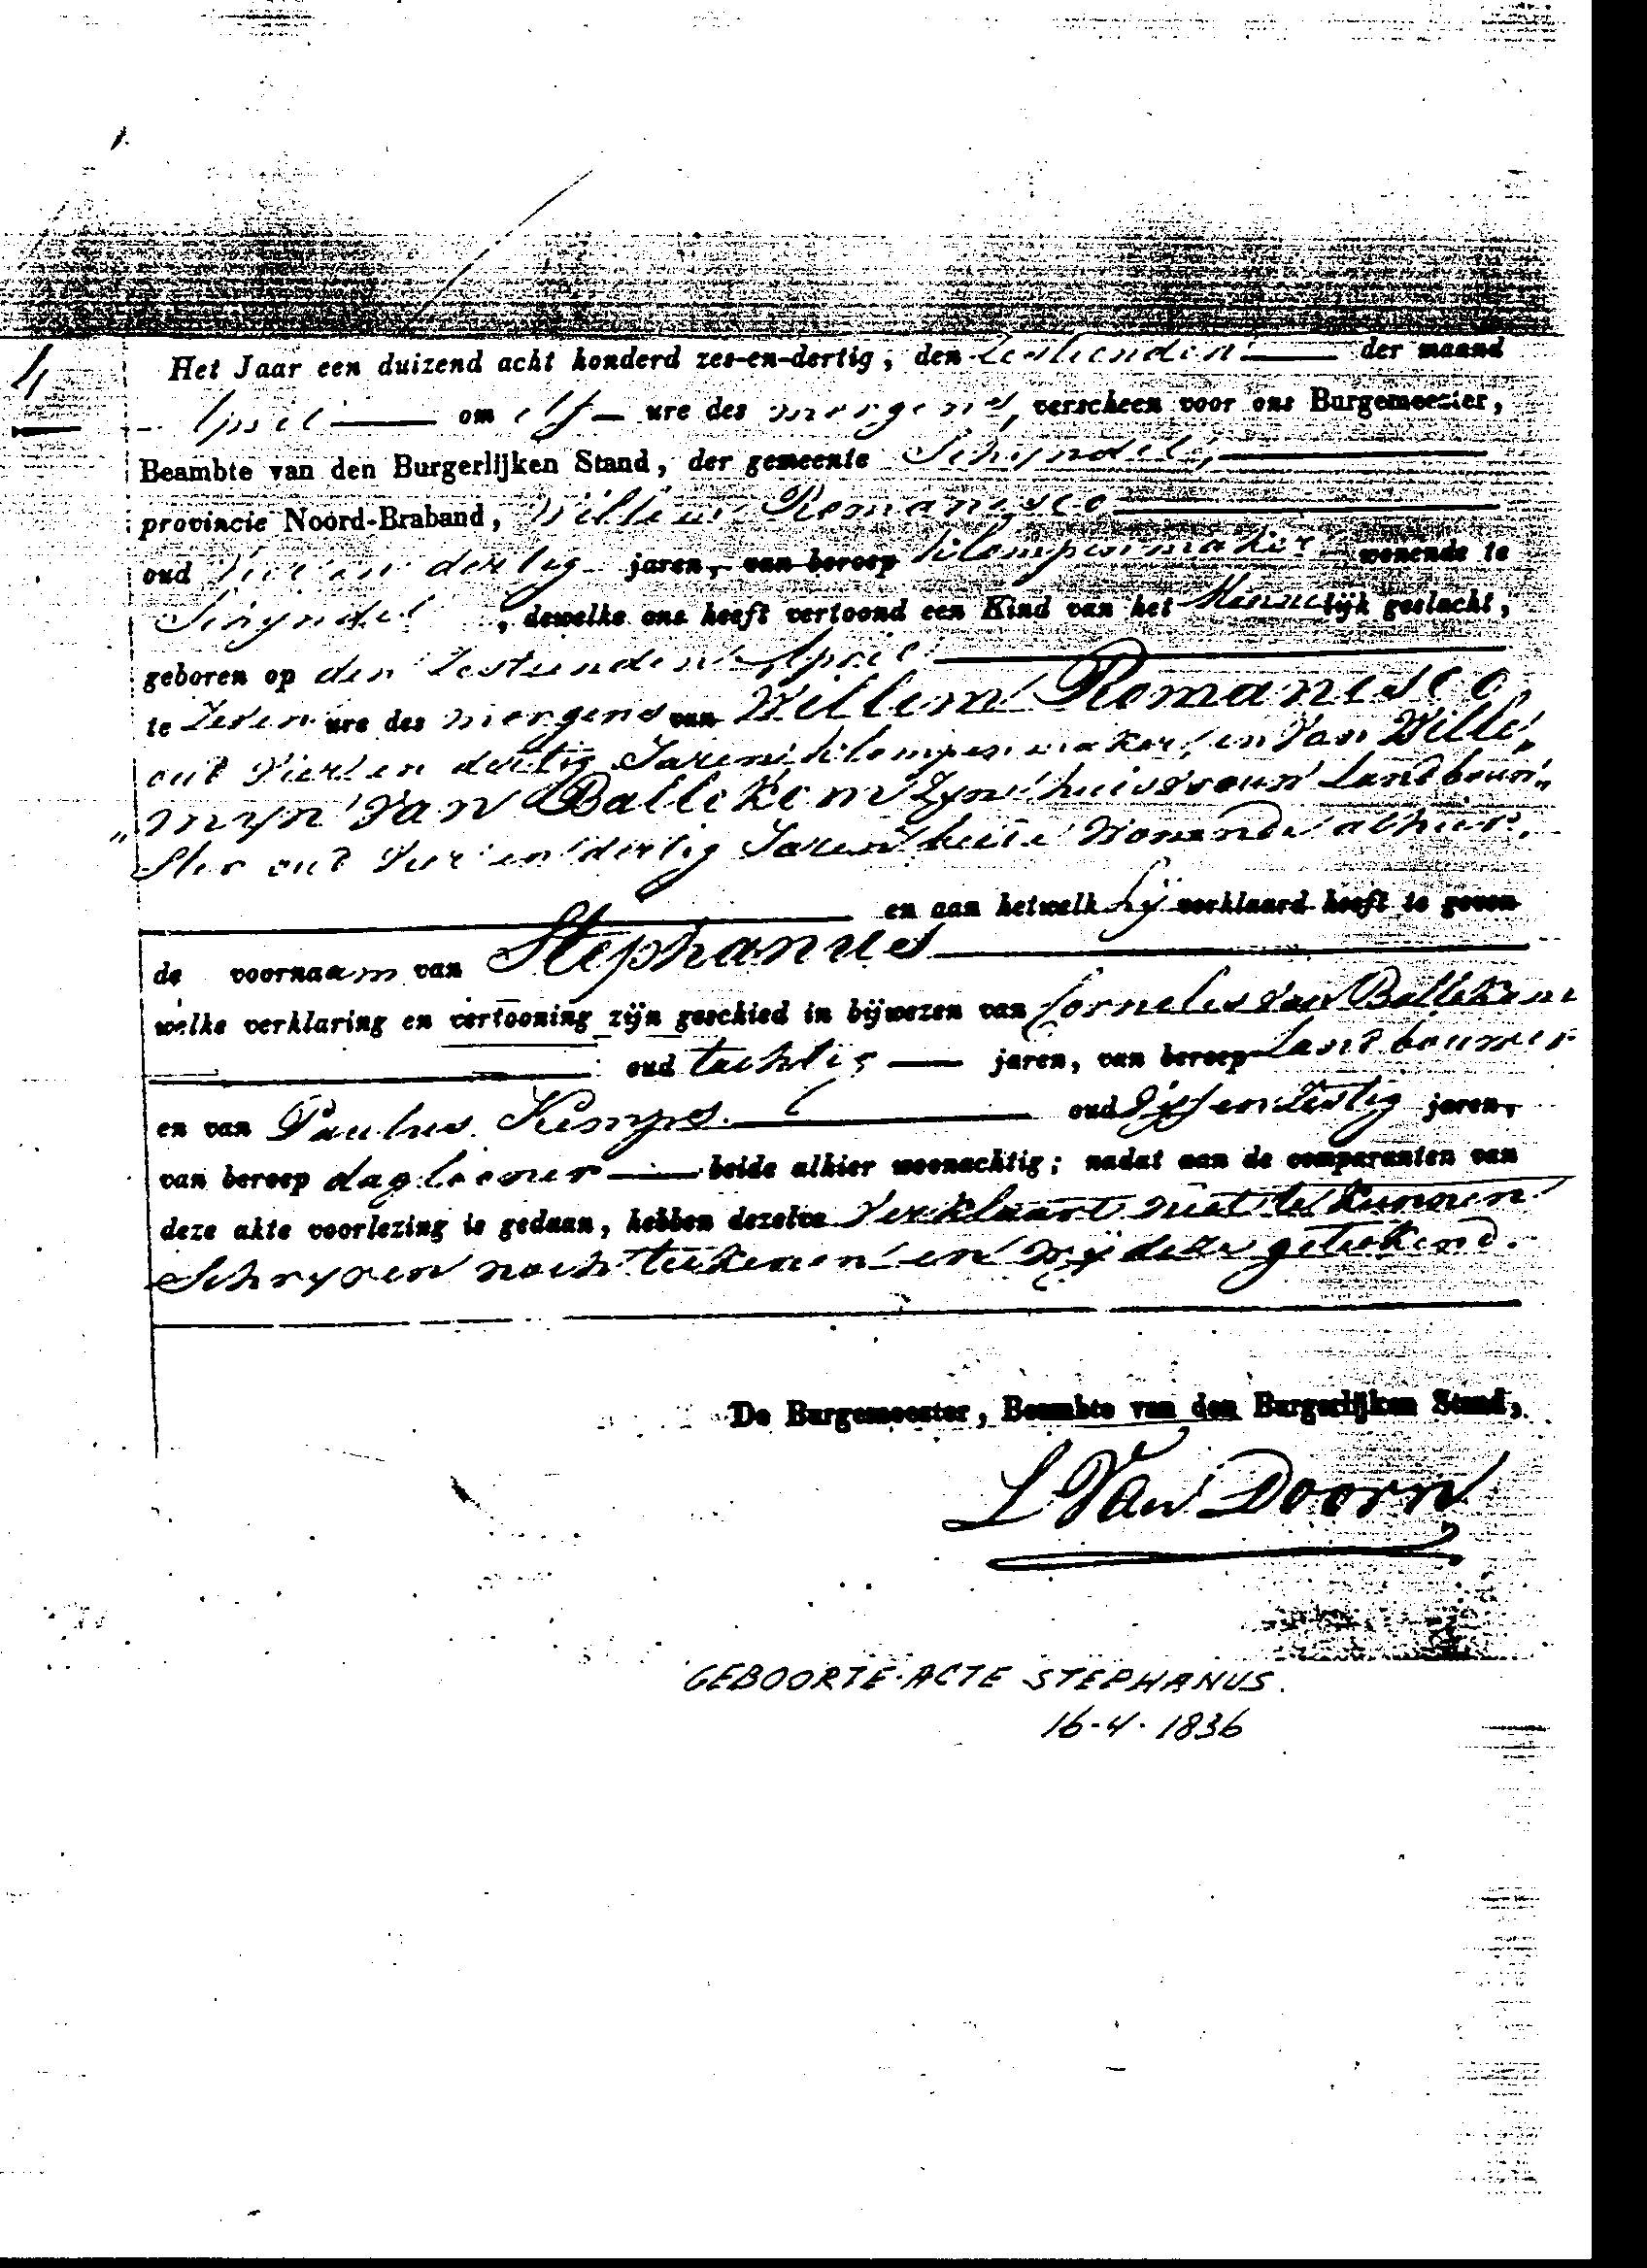 Het Jaar een duizend acht honderd zes-en-dertig, den Zestienden der maand
April om elf ure des morgens, verscheen voor ons Burgemeester,
Beambte van den Burgerlijken Stand, der gemeente Schyndel,
provincie Noord-Braband, Willem Romanesco
oud Vier en dertig jaren, van beroep klompenmaker wonende te
Schyndel, dewelke ons heeft vertoond een Kind van het Mannelijk geslacht,
geboren op den Zestienden April
te Zeven ure des morgens van Willem Romanesco,
out Vier en dertig Jaren klompenmaker, en Van Wille„
„myn Van Ballekom Zyn huisvrouw Landbouw„
ster out Vier en dertig Jaren beide Wonende alhier.
en aan hetwelk hy verklaard heeft te geven
de voornaam van Stephanus
welke verklaring en vertooning zijn geschied in bijwezen van Cornelis Van Ballekom
oud tachtig jaren, van beroep Landbouwer
en van Paulus Kemps oud Vyf en Zestig jaren,
van beroep daglooner beide alhier woonachtig; nadat aan de comparanten van
deze akte voorlezing is gedaan, hebben dezelve Verklaart niet te kunnen
Schryven noch teekenen en Wy deze getekend.
De Burgemeester, Beambte van den Burgerlijken Stand,
L Van Doorn
GEBOORTE-ACTE STEPHANUS.
16-4-1836